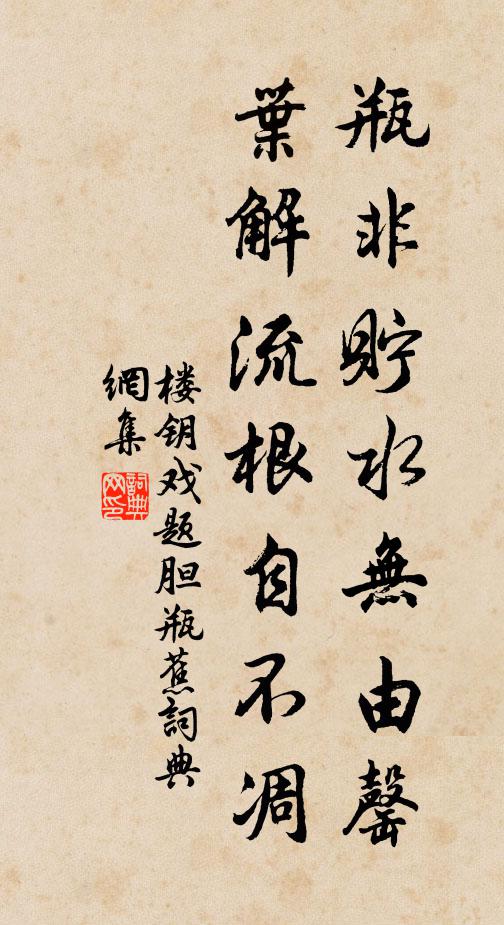 瓶非貯水無由罄
葉解流根自不凋
楼钥戏题胆瓶蕉詞典
網集
詞典
网印